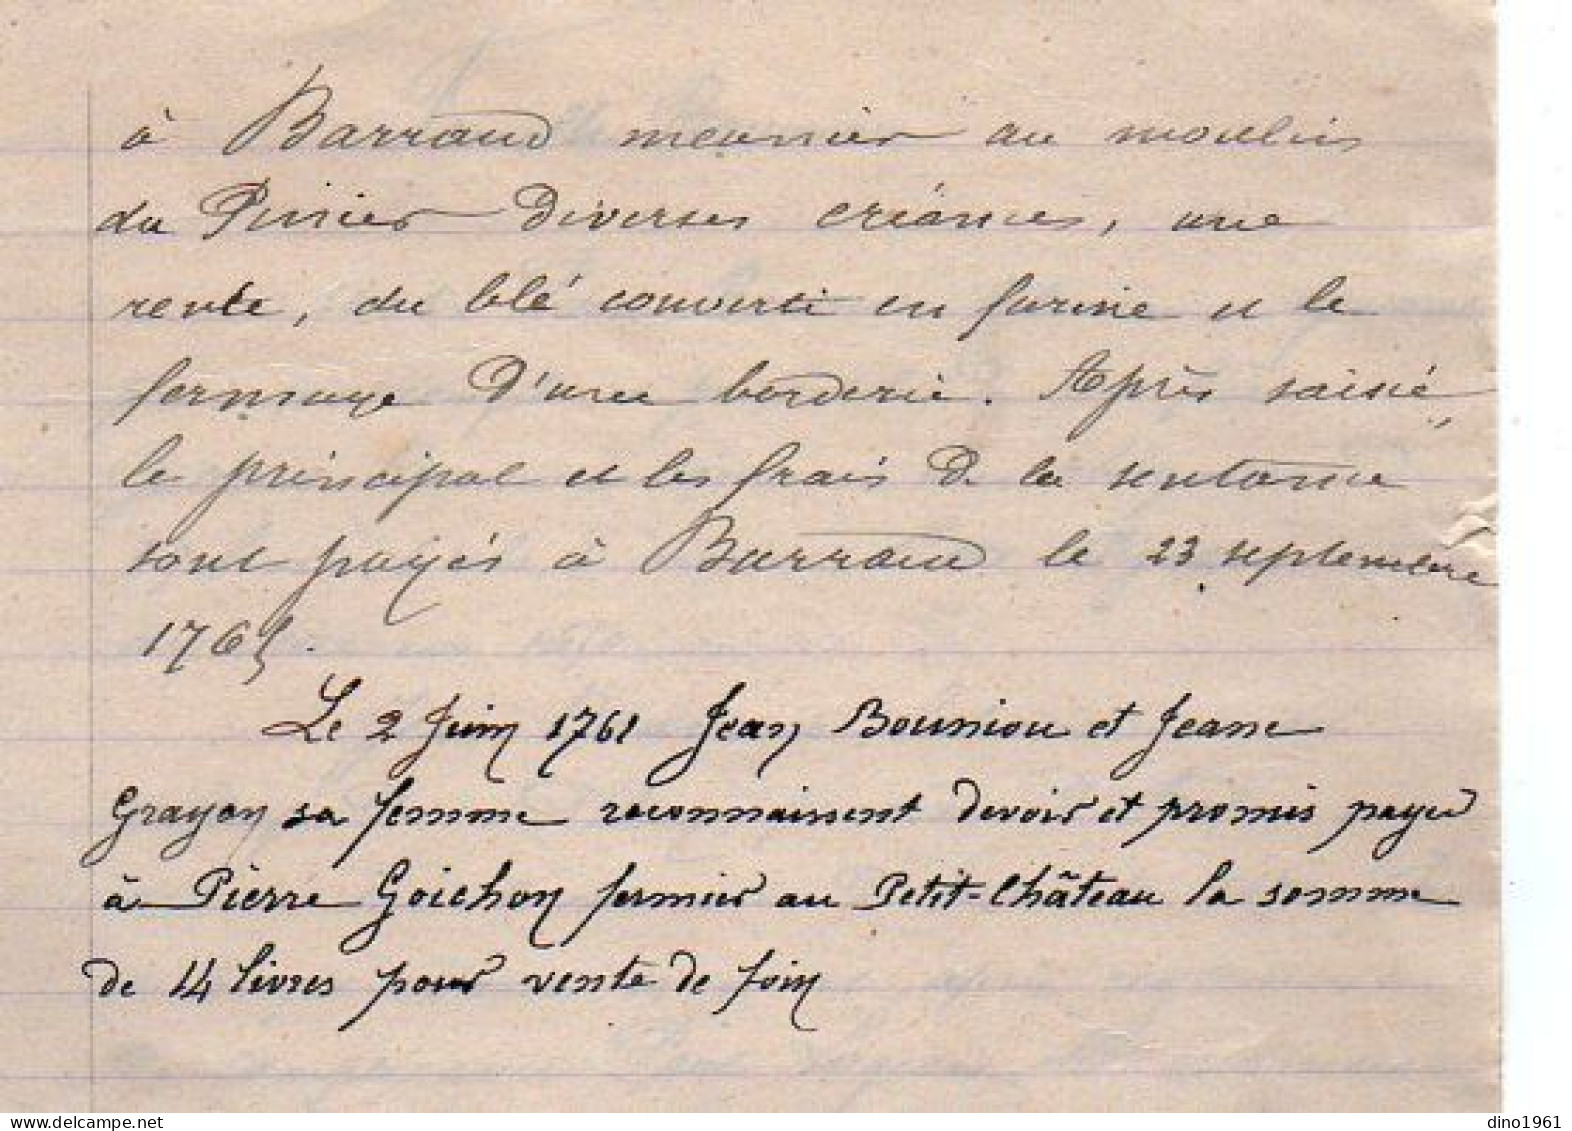 à Barraud meunier au moulin
du Diverses créances, une
rente, du blé converti en farine et le
fermage d'une borderie. Après saisie,
le principal et les frais de la sentance
sont payés à Barraud le 23 septembre
1765.
Le 2 Juin 1761 Jean Bouniou et Jeanne
Grayon sa femme reconnaissent devoir et promis payer
à Pierre Goichon fermier au Petit-Château la somme
de 14 livres pour vente de foin
dino1961